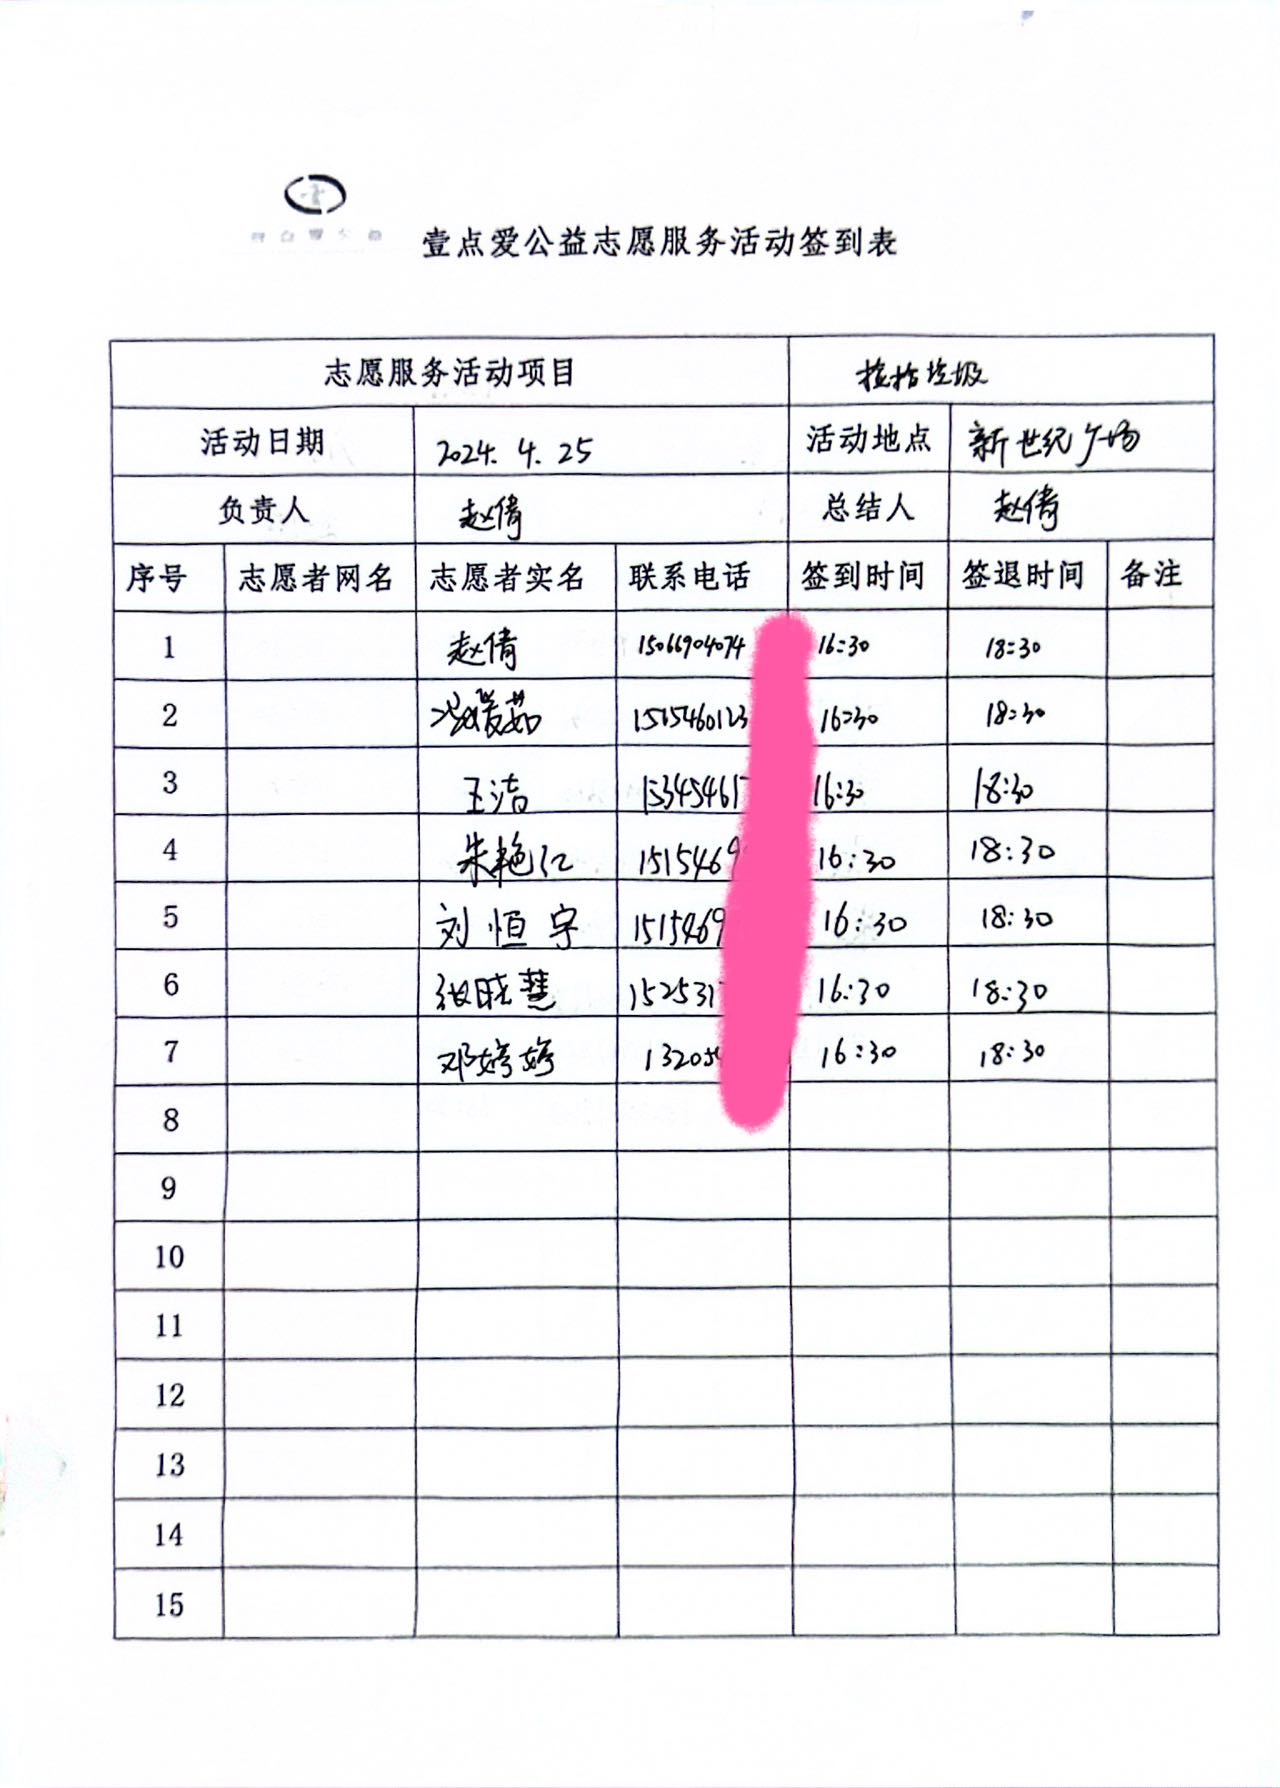 壹点爱公益志愿服务活动签到表
志愿服务活动项目 捡拾垃圾
活动日期 2024.4.25 活动地点 新世纪广场
负责人 赵倩 总结人 赵倩
序号 志愿者网名 志愿者实名 联系电话 签到时间 签退时间 备注
1 赵倩 15066904074 16:30 18:30
2 1515460123 16:30 18:30
3 王洁 153454617 16:30 18:30
4 朱艳红 1515469 16:30 18:30
5 刘恒宇 1515469 16:30 18:30
6 张晓慧 152531 16:30 18:30
7 邓婷婷 13205 16:30 18:30
8
9
10
11
12
13
14
15